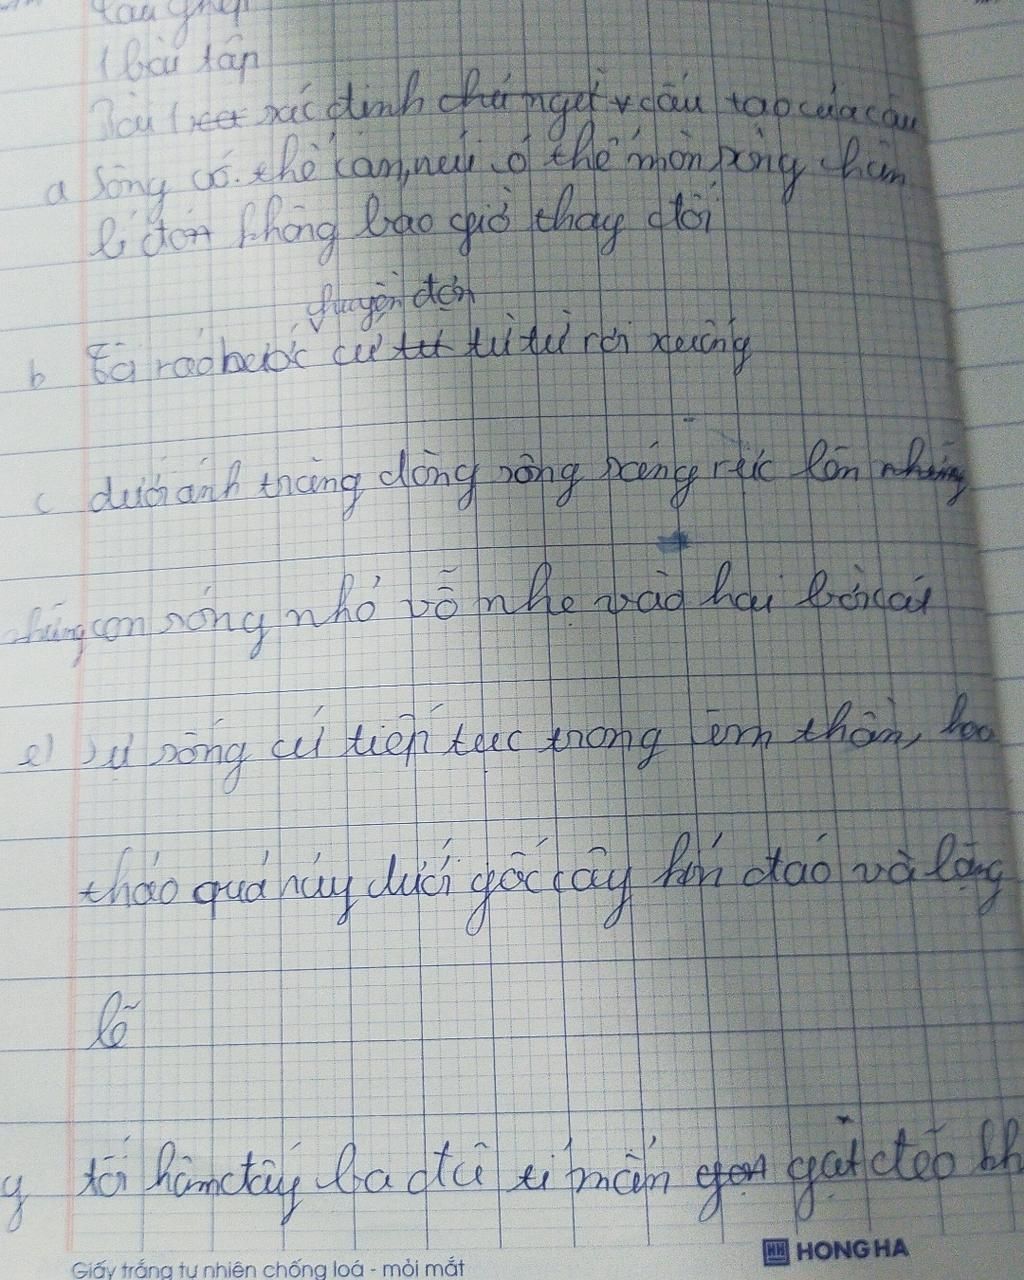 câu ghép
1 bài tập
Bài 1 xác định chủ ngữ v cấu tạo của câu
a Sông có thể cạn, núi có thể mòn, song chân
lí đó không bao giờ thay đổi
chuyện đơn
b Tà cứ từ từ rơi xuống
c dưới ánh trăng dòng sông sáng rực lên những
những con sóng nhỏ vỗ nhẹ vào hai bờ cát
e) Sự sống cứ tiếp tục trong âm thầm, hoa
thảo quả nảy dưới gốc cây kín đáo và lặng
lẽ
g tối hôm bà tỉ mẩn gọt
Giấy trắng tự nhiên chống loá - mỏi mắt
HH HONG HA